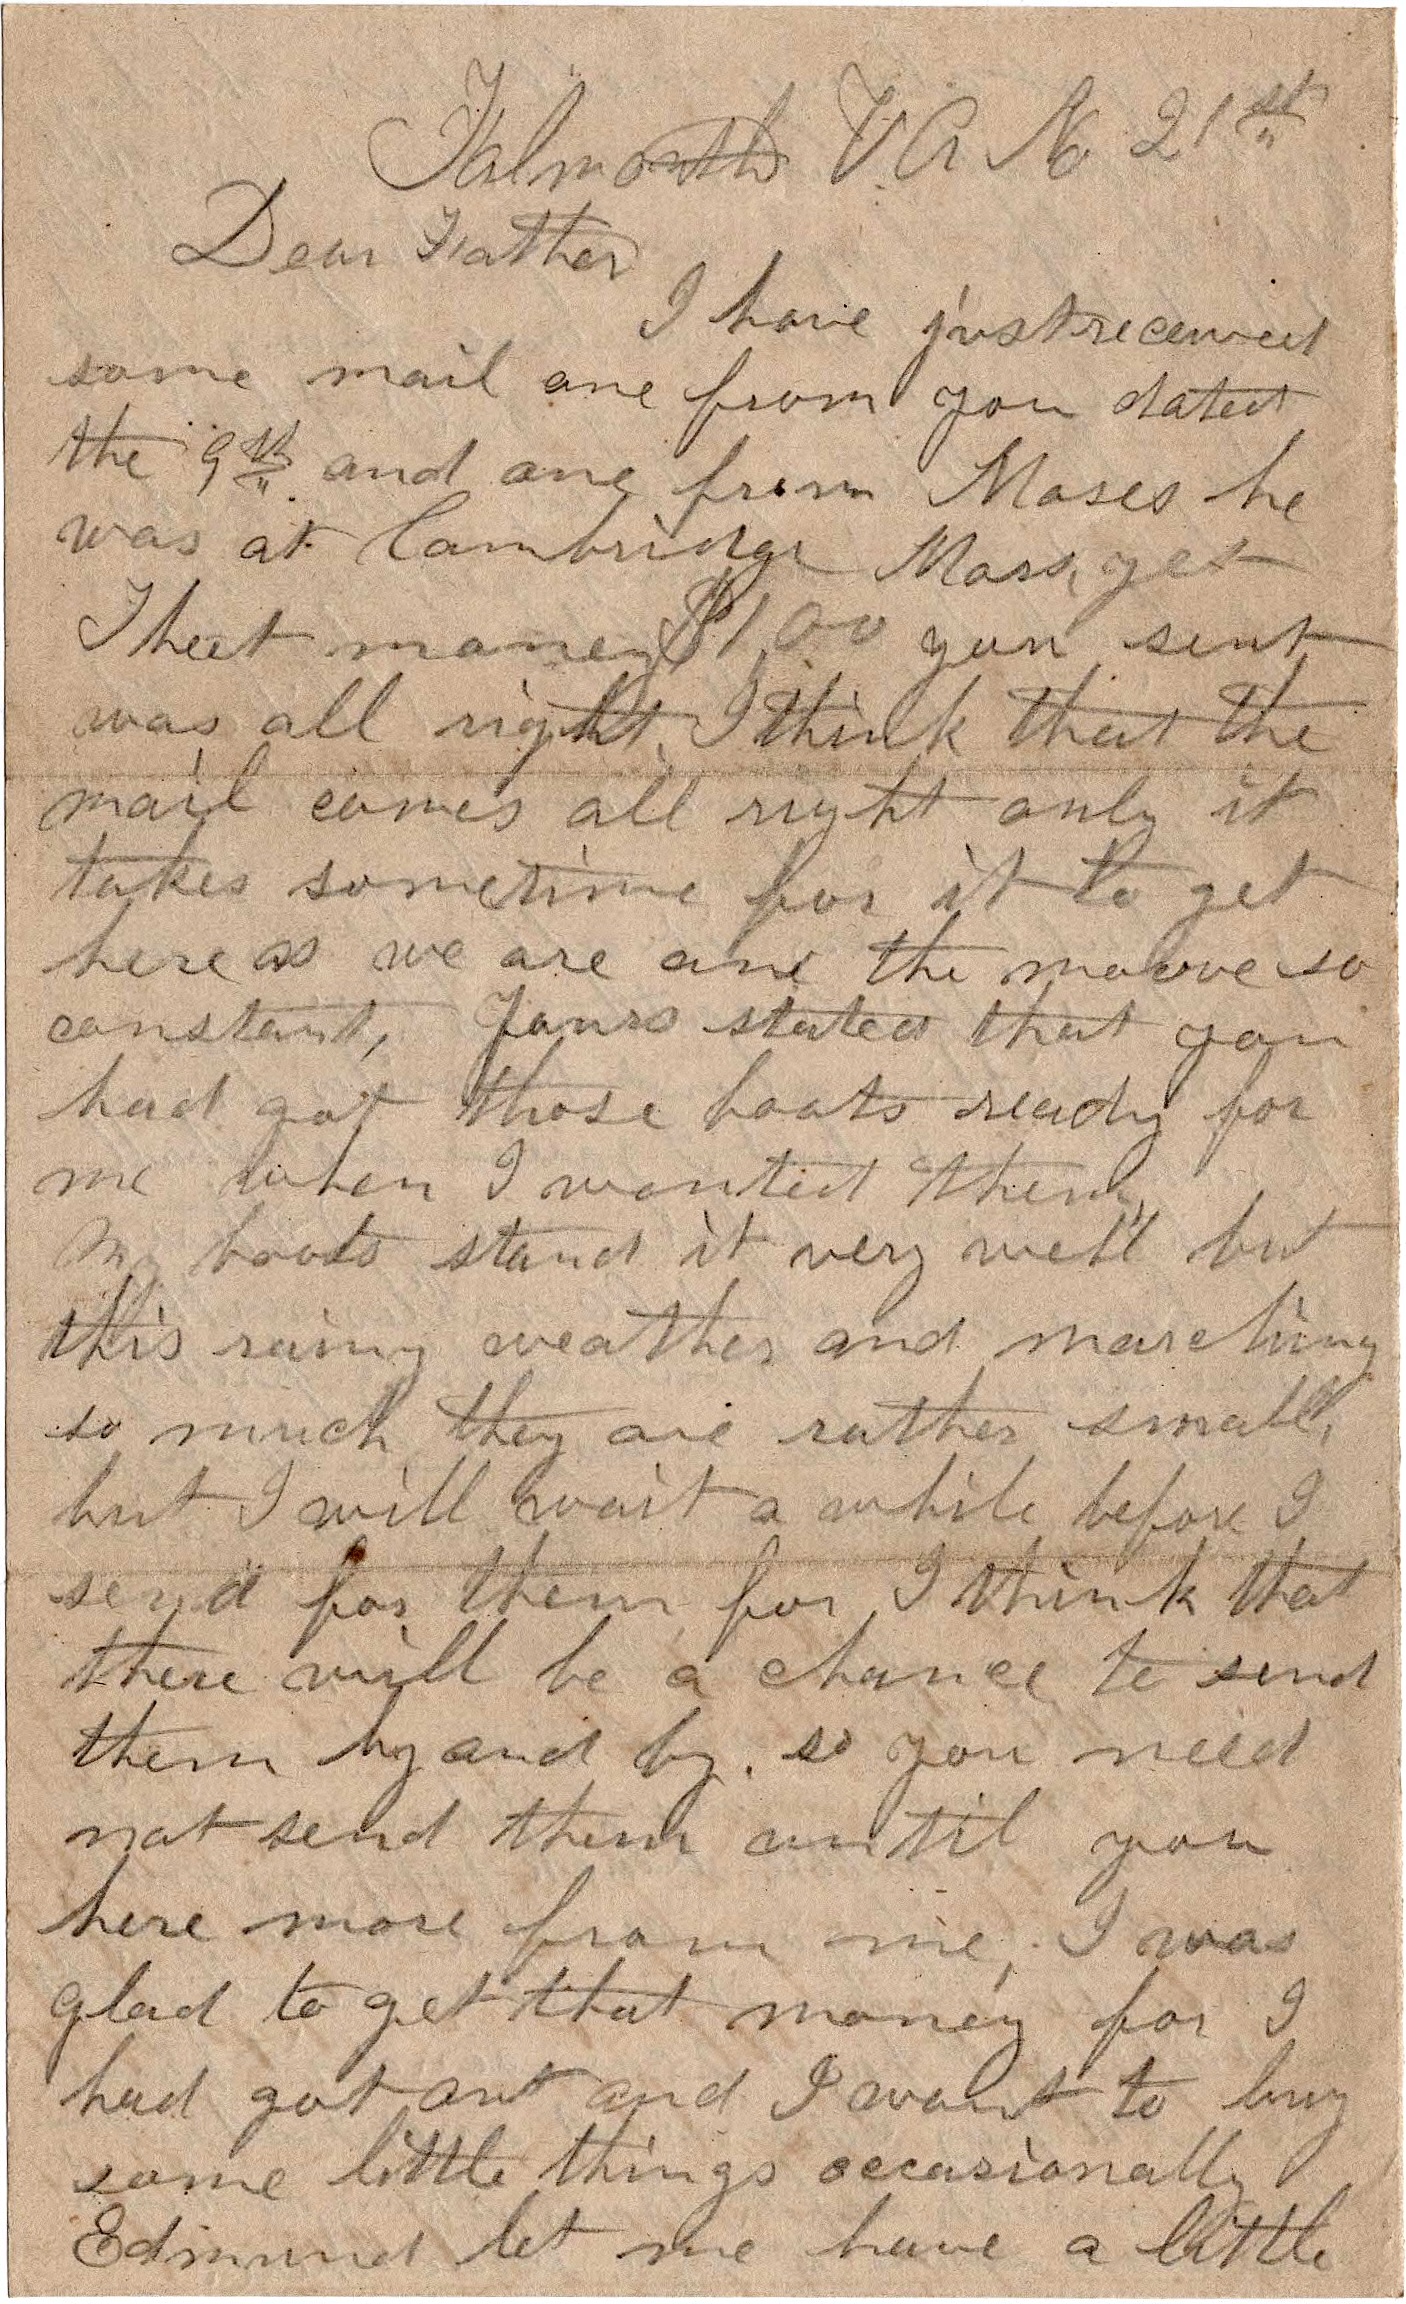 Falmouth V.A No 21st
Dear Father
I have just received
some mail one from you dated
the 9th and one from Moses he
was at Cambridge Mass, yet
Theet money $1,00 you sent
was all right, I think that the
mail comes all right only it
takes sometime for it to get
here as we are one the moove so
constant, Yours stated that you
had got those boots ready for
me when I wanted them,
My boots stand it very well but
this rainy weather and marching
so much they are rather small,
but I will wait a while before I
send for them for I think that
there will be a chance to send
them by and by. so you need
not send them until you
here more from me, I was
glad to get that money for I
had got out and I want to buy
some little things occasionally
Edmund let me have a little